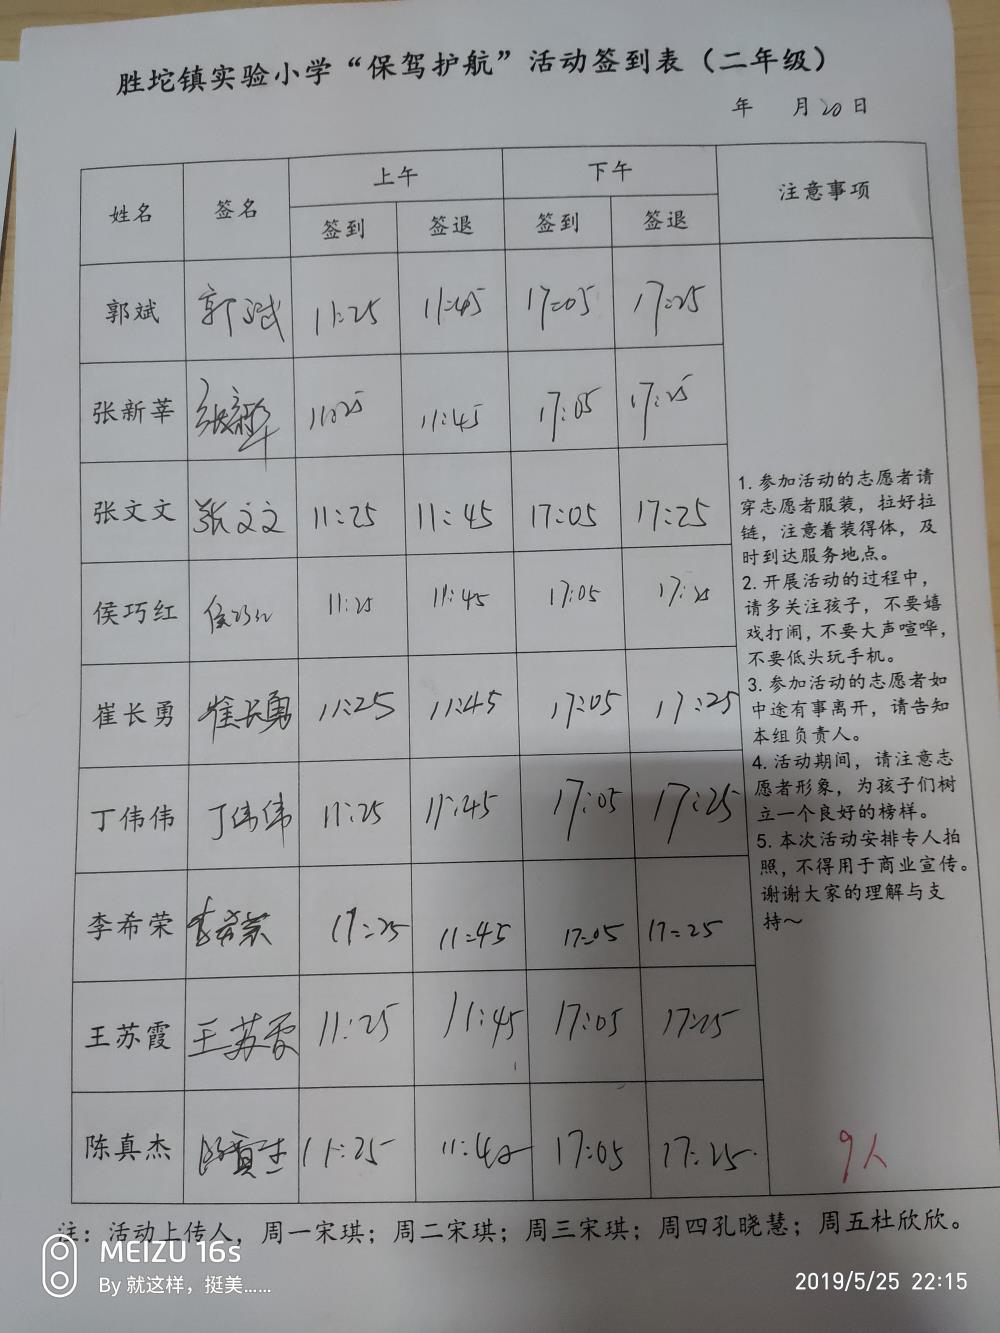 胜坨镇实验小学“保驾护航”活动签到表（二年级）
年 月20日
姓名 签名 上午 下午 注意事项
签到 签退 签到 签退
郭斌 郭斌 11:25 11:45 17:05 17:25
张新莘 张新莘 11:25 11:45 17:05 17:25
张文文 张文文 11:25 11:45 17:05 17:25
侯巧红 侯巧红 11:25 11:45 17:05 17:25
崔长勇 崔长勇 11:25 11:45 17:05 17:25
丁伟伟 丁伟伟 11:25 11:45 17:05 17:25
李希荣 李希荣 11:25 11:45 17:05 17:25
王苏霞 王苏霞 11:25 11:45 17:05 17:25
陈真杰 陈真杰 11:25 17:05 17:25
1. 参加活动的志愿者请
穿志愿者服装，拉好拉
链，注意着装得体，及
时到达服务地点。
2. 开展活动的过程中，
请多关注孩子，不要嬉
戏打闹，不要大声喧哗，
不要低头玩手机。
3. 参加活动的志愿者如
中途有事离开，请告知
本组负责人。
4. 活动期间，请注意志
愿者形象，为孩子们树
立一个良好的榜样。
5. 本次活动安排专人拍
照，不得用于商业宣传。
谢谢大家的理解与支
持～
9人
注：活动上传人，周一宋琪；周二宋琪；周三宋琪；周四孔晓慧；周五杜欣欣。
MEIZU 16s
By 就这样，挺美......
2019/5/25 22:15